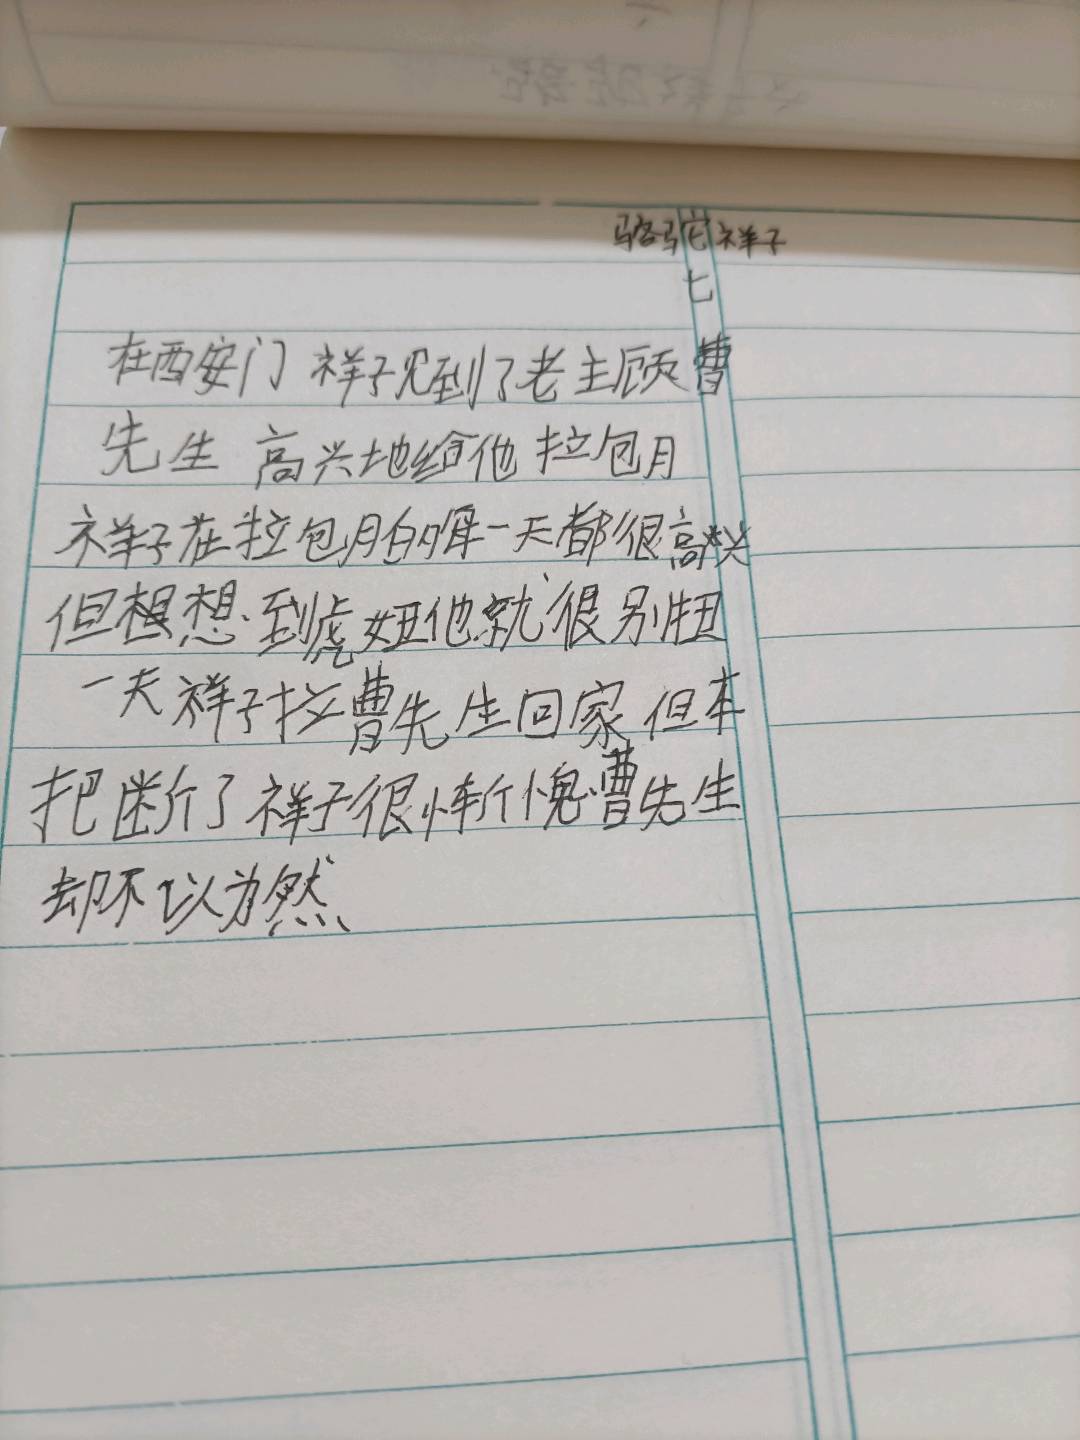 骆驼祥子
七
在西安门 祥子见到了老主顾曹
先生 高兴地给他拉包月
祥子在拉包月的每一天都很高兴
但想想到虎妞他就很别扭
一天祥子拉曹先生回家 但车
把断了 祥子很惭愧曹先生
却不以为然